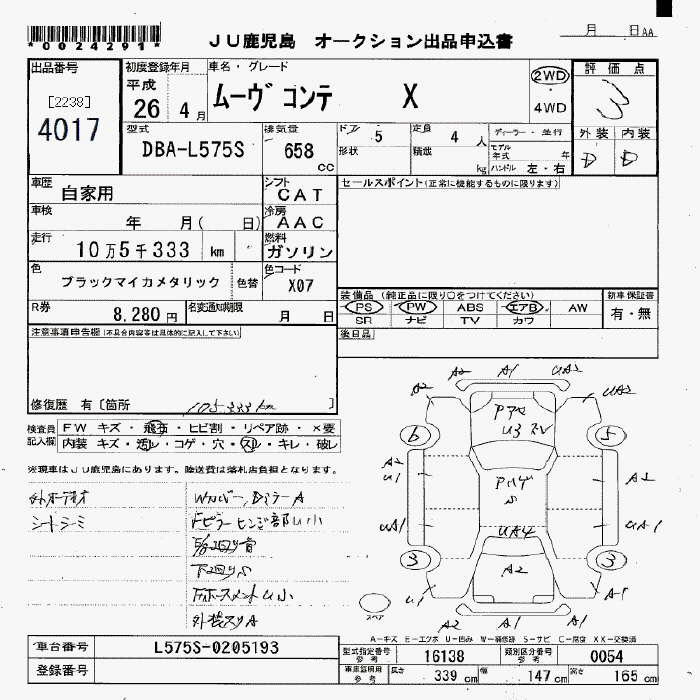 *0024291*
JU鹿児島 オークション出品申込書
月 日AA
出品番号
[2238]
4017
初度登録年月
平成
26 4月
車名・グレード
ムーヴ コンテ X
2WD
4WD
評価点
3
外装 内装
D D
型式
DBA-L575S
排気量
658 cc
ドア 5
形状
定員 4 人
積載 kg
ディーラー・並行
モデル年式 年
ハンドル 左・右
車歴
自家用
シフト
CAT
セールスポイント(正常に機能するものに限ります)
車検
年 月( 日)
冷房
AAC
走行
10万5千333 km
燃料
ガソリン
色
ブラックマイカメタリック
色替
色コード
X07
R券
8,280円
名変通知期限
月 日
装備品(純正品に限り○をつけてください)
新車保証書
PS PW ABS エアB AW
有・無
SR ナビ TV カワ
後日品
注意事項申告欄(不具合内容等は具体的に記入して下さい)
修復歴 有〔箇所 〕
105,333km
検査員記入欄
FW キズ・飛石・ヒビ割・リペア跡・×要
内装 キズ・汚レ・コゲ・穴・スレ・キレ・破レ
※現車はJU鹿児島にあります。陸送費は落札店負担となります。
外オーデオ
シートシミ
Wカバー,Dミラー A
下回りS
外装スリA
A2 A1 UA2
A2 UA2
PアA
U3
6 5
A2 A2
U1
S
UA1 UA1
UA4
3 3
A2
U1 A-1
スペア
A2 A1 UA1
A-キズ E-エクボ U-凹み W-補修跡 S-サビ C-腐蝕 XX-交換済
車台番号
L575S-0205193
登録番号
型式指定番号 参考
16138
類別区分番号 参考
0054
車庫証明用 参考
長さ 339 cm 幅 147 cm 高さ 165 cm